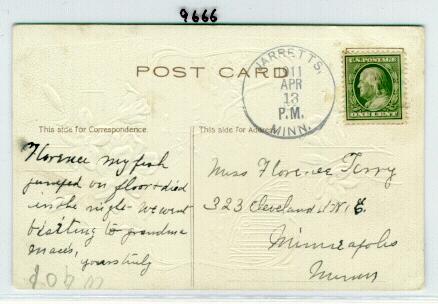 9666
POST CARD
JARRETTS,
1911
APR
13
P.M.
MINN.
U.S. POSTAGE
ONE CENT
This side for Correspondence.
This side for Address
Florence my fish
jumped on floor & died
in the night. We went
visiting to grandma
yours truly
Miss Florence Terry
323 Cleveland
Minneapolis